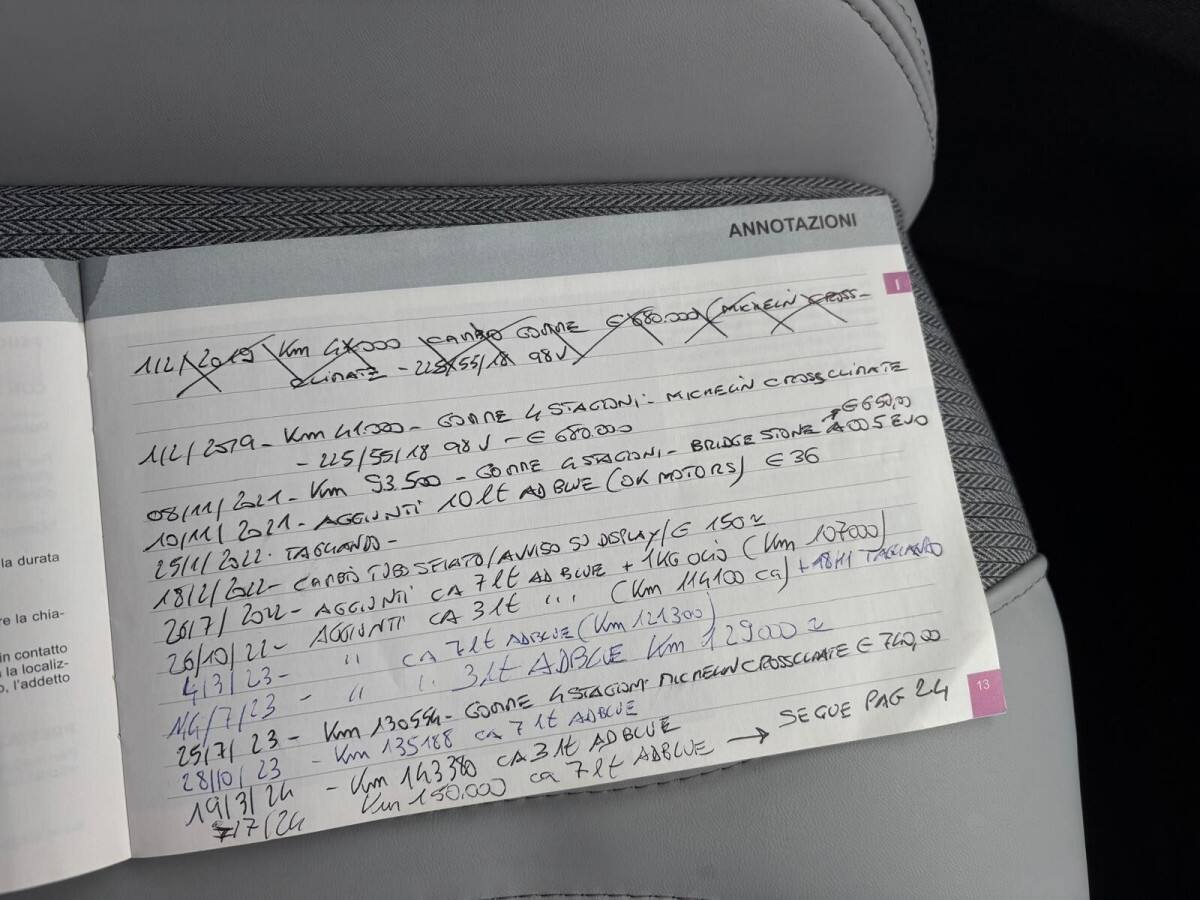 ANNOTAZIONI
I
1/2/2019 Km 41000 CAMBIO GOMME € 680.000 (MICHELIN CROSS-
CLIMATE - 225/55/18 98V
1/2/2019 - Km 41.000 - GOMME 4 STAGIONI - MICHELIN CROSSCLIMATE
- 225/55/18 98V - € 680.000
€ 650,00
08/11/2021 - Km 93.500 - GOMME 4 STAGIONI - BRIDGESTONE A005 EVO
10/11/2021 - AGGIUNTI 10 lt ADBLUE (OK MOTORS) € 36
25/1/2022. TAGLIANDO -
18/2/2022 - CAMBIO TUBO SFIATO/AVVISO SU DISPLAY/€ 150 ~
26/7/2022 - AGGIUNTI CA 7 lt ADBLUE + 1KG OLIO (Km 107000)
26/10/22 - AGGIUNTI CA 3 lt " " (Km 114100 ca) + 18/11 TAGLIANDO
4/3/23 - " CA 7 lt ADBLUE (Km 121300)
14/7/23 - " ". 3 lt ADBLUE Km 129000 ~
25/7/23 - Km 130554 - GOMME 4 STAGIONI MICHELIN CROSSCLIMATE € 740,00
28/10/23 - Km 135188 ca 7 lt ADBLUE
19/3/24 - Km 143380 CA 3 lt ADBLUE
7/24 Km 150.000 ca 7 lt ADBLUE → SEGUE PAG 24
13
la durata
re la chia-
in contatto
la localiz-
o, l'addetto